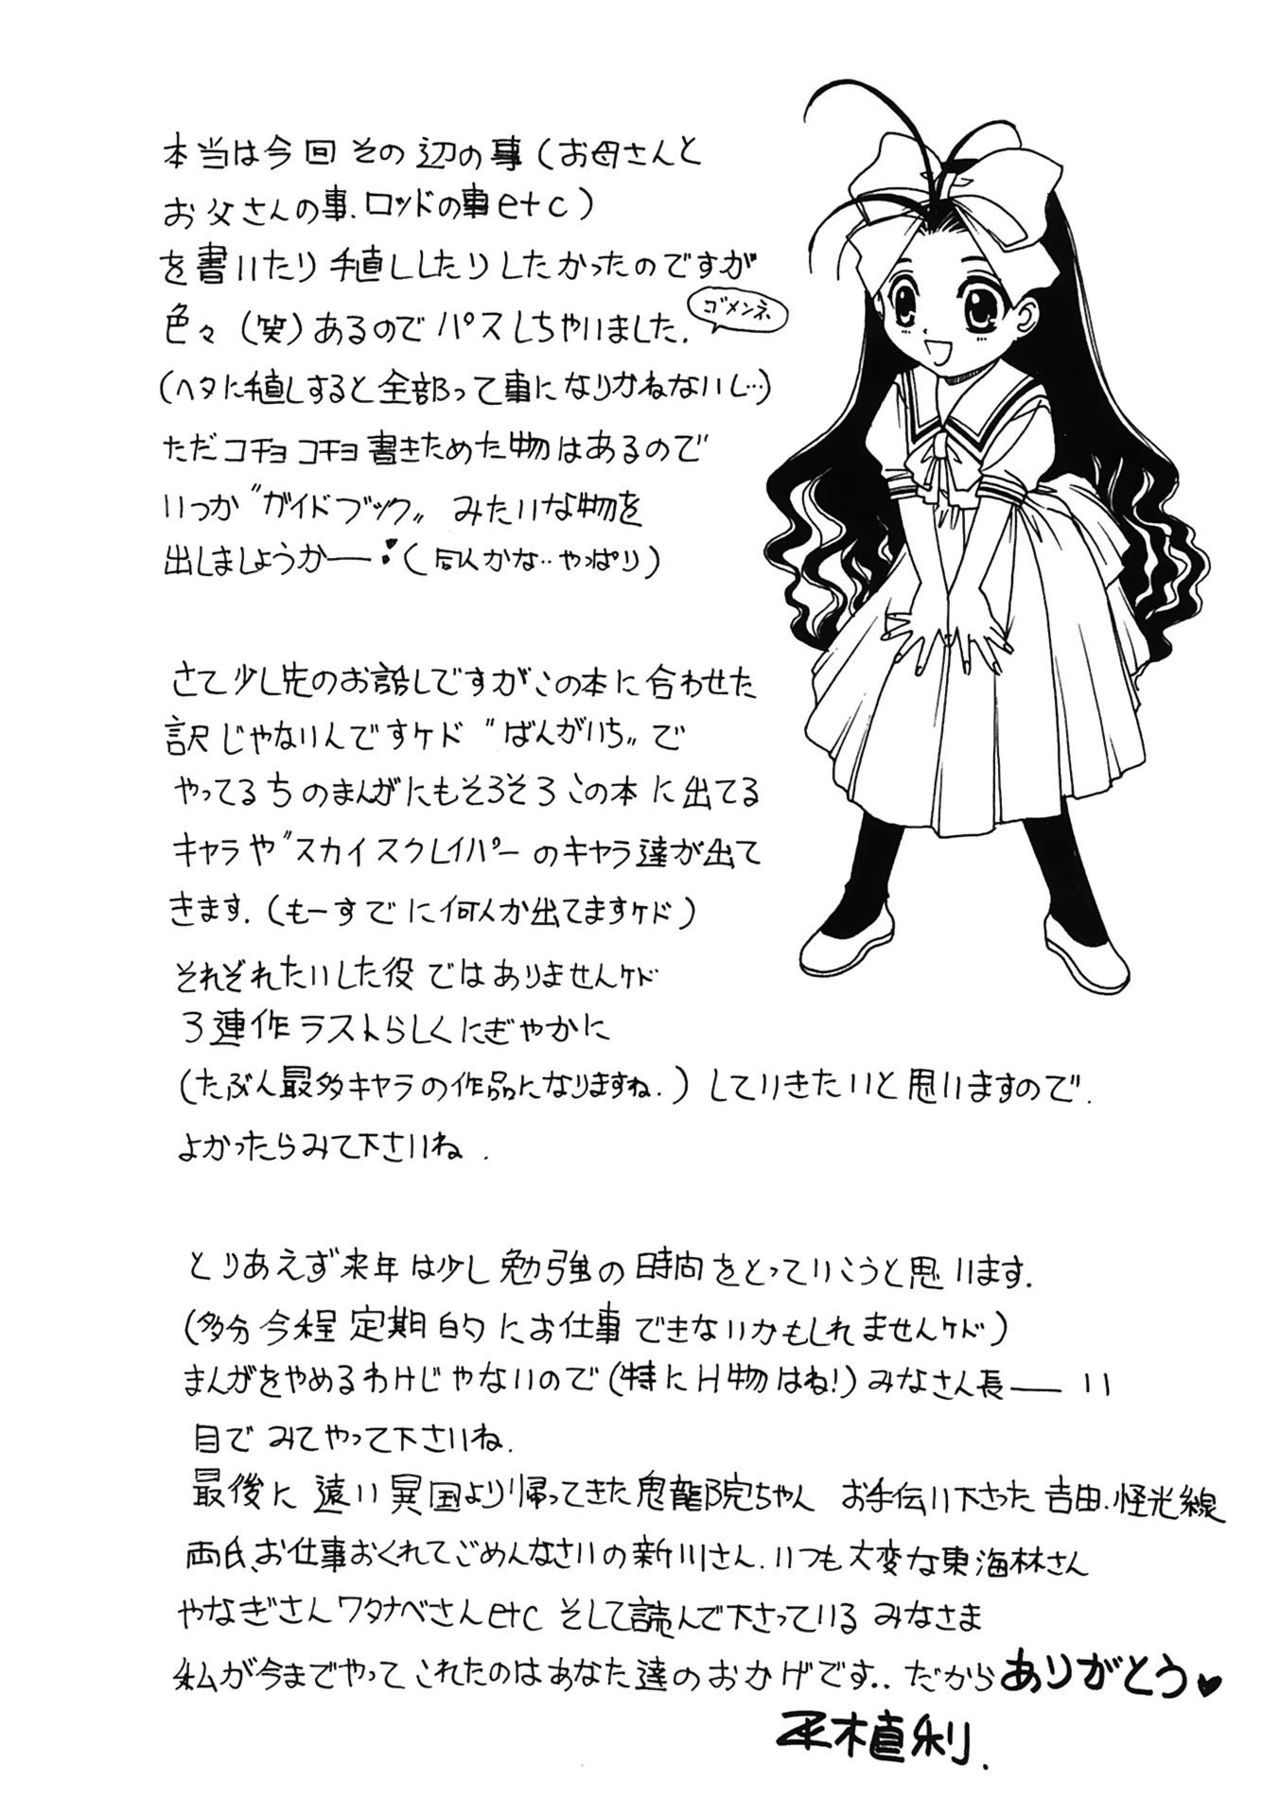 本当は今回その辺の事(お母さんと
お父さんの事.ロッドの事etc)
を書いたり手直ししたりしたかったのですが
色々(笑)あるのでパスしちゃいました.
ゴメンネ.
(ヘタに手直しすると全部って事になりかねないし…)
ただコチョコチョ書きためた物はあるので
いつか〝ガイドブック〟みたいな物を
出しましょうかー(同人かな‥やっぱり)
さて少し先のお話しですがこの本に合わせた
訳じゃないんですケド〝ばんがいち〟で
やってるちのまんがにもそろそろこの本に出てる
キャラや〝スカイスクレイパーのキャラ達が出て
きます.(もーすでに何人か出てますケド)
それぞれたいした役ではありませんケド
3連作ラストらしくにぎやかに
(たぶん最多キャラの作品になりますね.)していきたいと思いますので.
よかったらみて下さいね.
とりあえず来年は少し勉強の時間をとっていこうと思います.
(多分今程定期的にお仕事できないかもしれませんケド)
まんがをやめるわけじゃないので(特にH物はね!)みなさん長ーい
目でみてやって下さいね.
最後に遠い異国より帰ってきた鬼龍院ちゃん お手伝い下さった吉田.怪光線
両氏、お仕事おくれてごめんなさいの新川さん.いつも大変な東海林さん
やなぎさんワタナベさんetc そして読んで下さっているみなさま
私が今までやってこれたのはあなた達のおかげです..だからありがとう♥
平木直利.